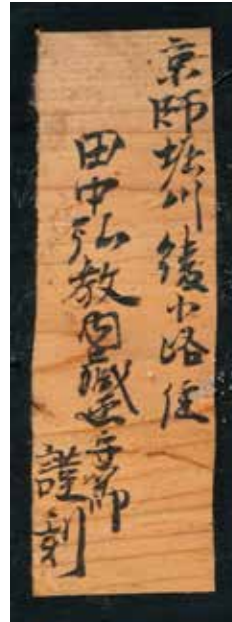 京師堀川綾小路住
田中弘教内蔵丞守節
謹刻